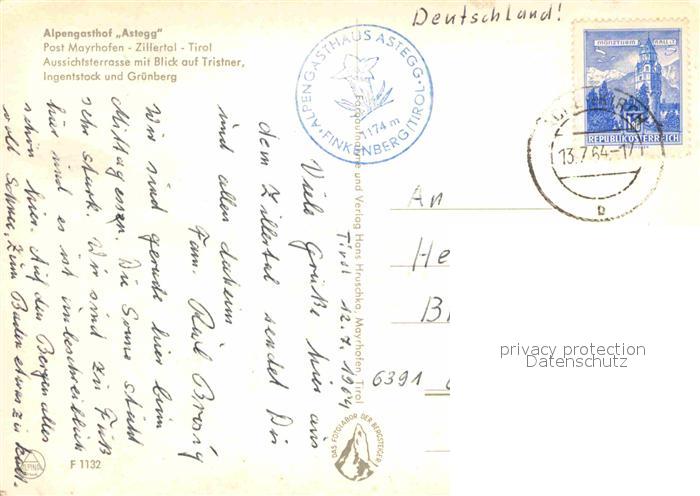 Deutschland!
Alpengasthof „Astegg"
Post Mayrhofen - Zillertal - Tirol
Aussichtsterrasse mit Blick auf Tristner,
Ingentstock und Grünberg
ALPENGASTHAUS ASTEGG · FINKENBERG (TIROL) ·
1174 m
MÜNZTURM HALL i. T.
REPUBLIK ÖSTERREICH
13.7.64-17
b
Tirol 12.7.1964
Viele Grüße hier aus
dem Zillertal sendet Dir
und allen daheim
Fam. Karl Brosig
Wir sind gerade hier beim
Mittagessen. Die Sonne sticht
sehr stark. Wir sind zu Fuß
hier und es ist unbeschreiblich
schön hier. Auf den Bergen alles
voll Schnee, zum Baden etwas zu kalt.
Fotoaufnahme und Verlag Hans Hruschka, Mayrhofen, Tirol
An
He
B
6391
privacy protection
Datenschutz
DAS FOTOLABOR DER BERGSTEIGER
ALPINA
F 1132